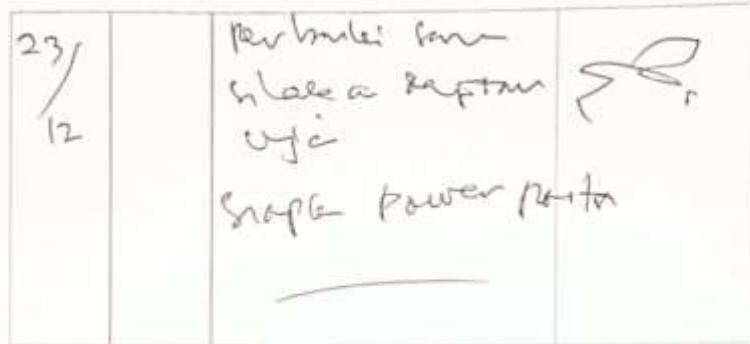 23/12
Perbaiki
silakan daftar
uji
siapkan power point